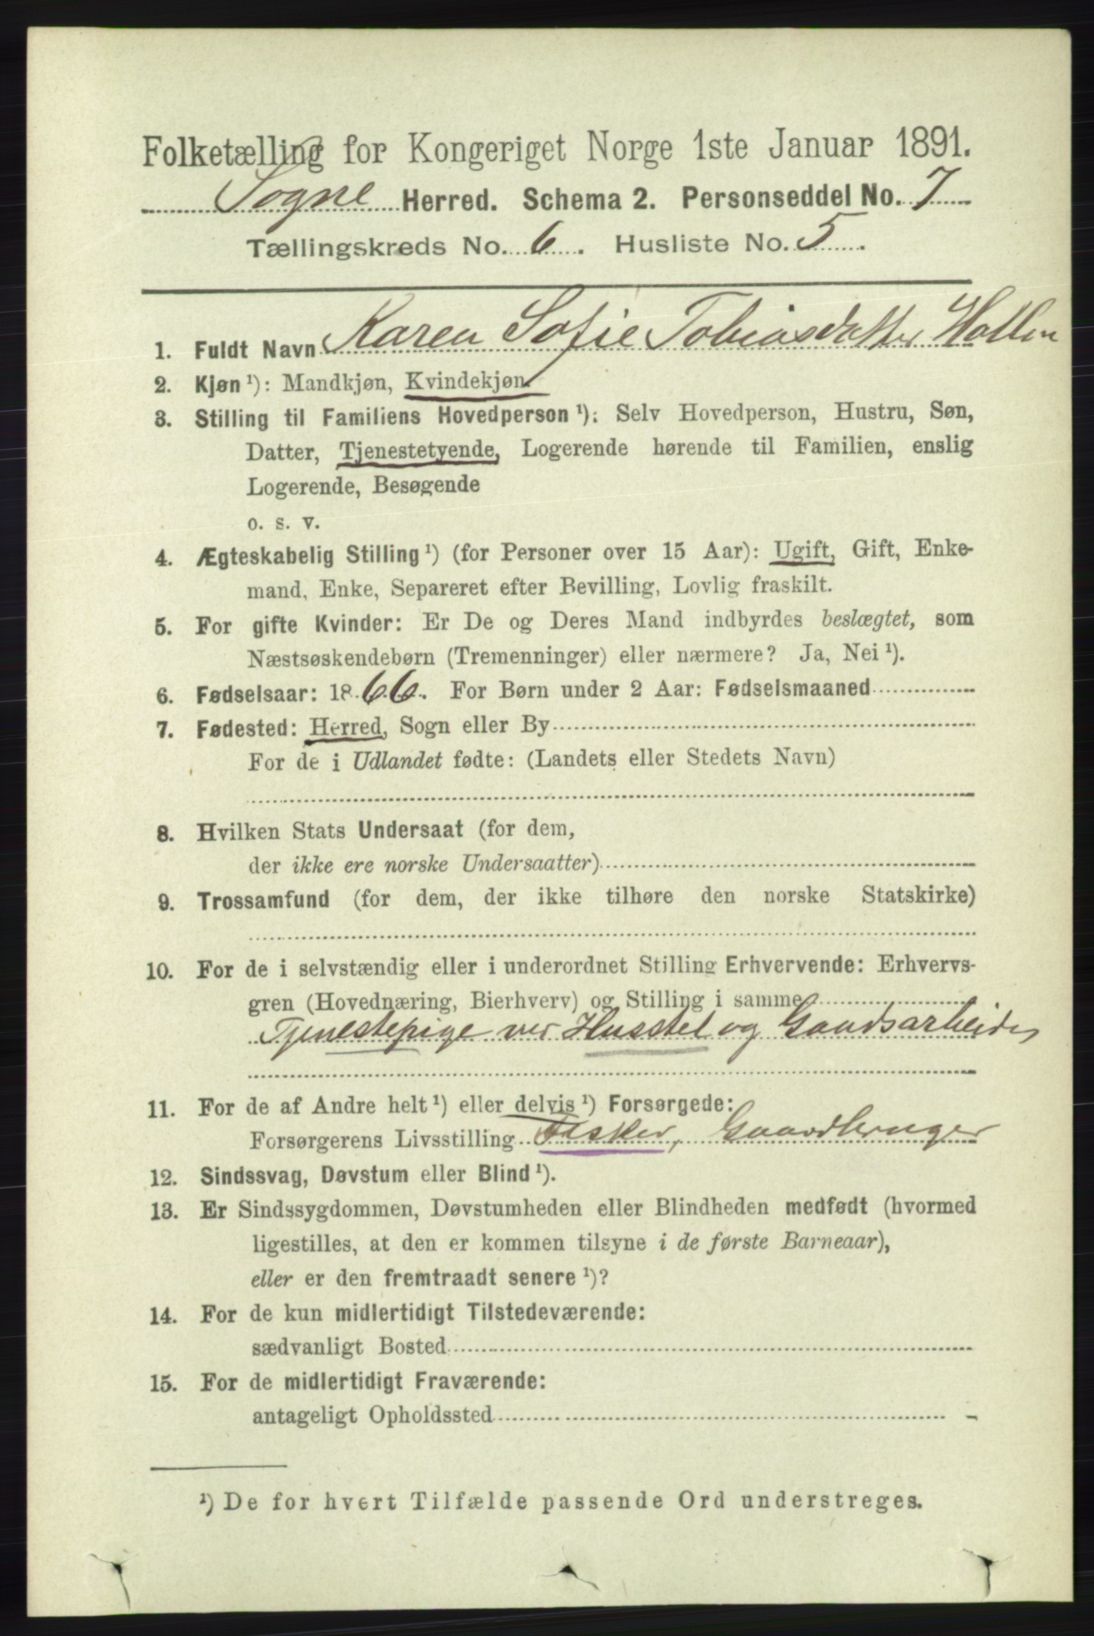 Folketælling for Kongeriget Norge 1ste Januar 1891.
Sogne Herred. Schema 2. Personseddel No. 7
Tællingskreds No. 6. Husliste No. 5.
1. Fuldt Navn Karen Sofie Tobiasdatter Hollen
2. Kjøn ¹): Mandkjøn, Kvindekjøn.
3. Stilling til Familiens Hovedperson ¹): Selv Hovedperson, Hustru, Søn,
Datter, Tjenestetyende, Logerende hørende til Familien, enslig
Logerende, Besøgende
o. s. v.
4. Ægteskabelig Stilling ¹) (for Personer over 15 Aar): Ugift, Gift, Enke-
mand, Enke, Separeret efter Bevilling, Lovlig fraskilt.
5. For gifte Kvinder: Er De og Deres Mand indbyrdes beslægtet, som
Næstsøskendebørn (Tremenninger) eller nærmere? Ja, Nei ¹).
6. Fødselsaar: 1866. For Børn under 2 Aar: Fødselsmaaned
7. Fødested: Herred, Sogn eller By
For de i Udlandet fødte: (Landets eller Stedets Navn)
8. Hvilken Stats Undersaat (for dem,
der ikke ere norske Undersaatter)
9. Trossamfund (for dem, der ikke tilhøre den norske Statskirke)
10. For de i selvstændig eller i underordnet Stilling Erhvervende: Erhvervs-
gren (Hovednæring, Bierhverv) og Stilling i samme
Tjenestepige ver Husstel og Gaadsarbeide
11. For de af Andre helt ¹) eller delvis ¹) Forsørgede:
Forsørgerens Livsstilling Fisker, Gaardbruger
12. Sindssvag, Døvstum eller Blind ¹).
13. Er Sindssygdommen, Døvstumheden eller Blindheden medfødt (hvormed
ligestilles, at den er kommen tilsyne i de første Barneaar),
eller er den fremtraadt senere ¹)?
14. For de kun midlertidigt Tilstedeværende:
sædvanligt Bosted
15. For de midlertidigt Fraværende:
antageligt Opholdssted
¹) De for hvert Tilfælde passende Ord understreges.